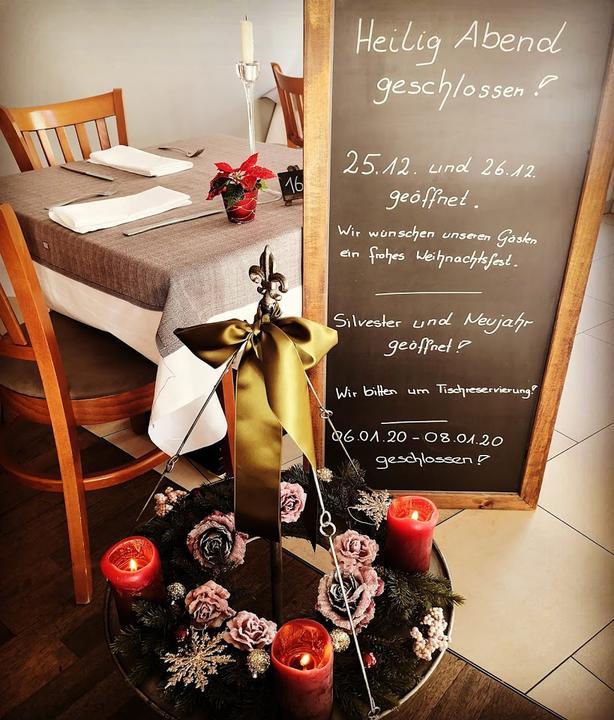 Heilig Abend
geschlossen!
25.12. und 26.12.
geöffnet.
Wir wünschen unseren Gästen
ein frohes Weihnachtsfest.
Silvester und Neujahr
geöffnet!
Wir bitten um Tischreservierung!
06.01.20 - 08.01.20
geschlossen!
16